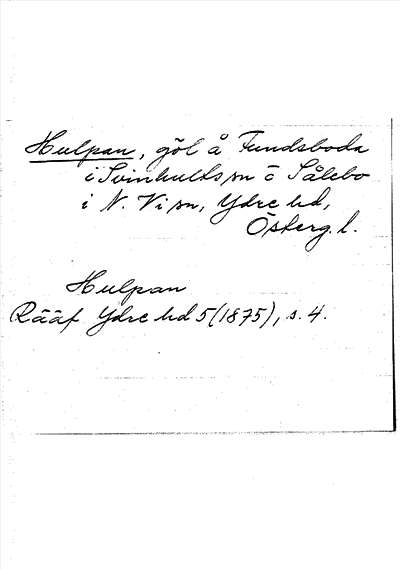 Hulpan, göl å Fundsboda
i Svinhults sn o Sålebo
i N. Vi sn, Ydre hd,
Österg. l.
Hulpan
Rääf Ydre hd 5(1875), s. 4.